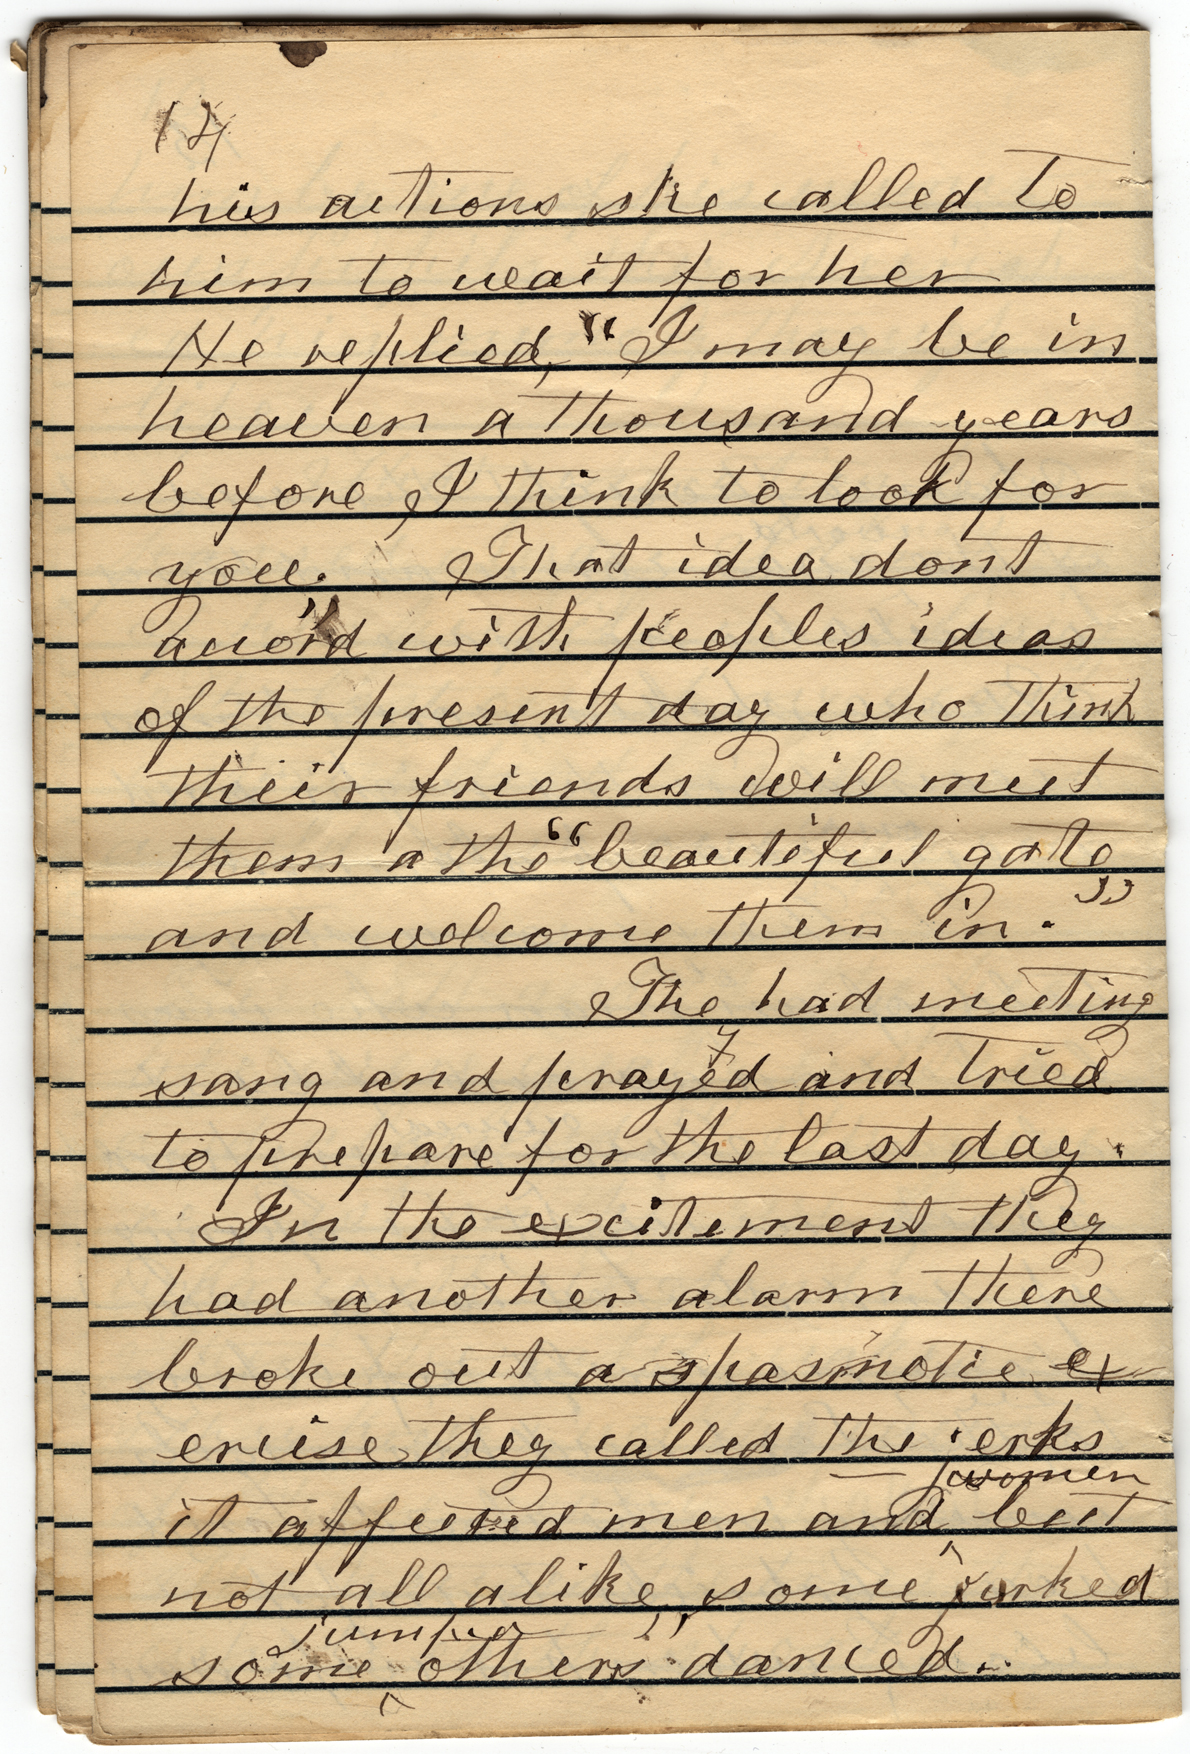 14
his actions she called to
him to wait for her
He replied, "I may be in
heaven a thousand years
before I think to look for
you." That idea dont
accord with peoples ideas
of the present day who think
their friends will meet
them a the "beautiful gate
and welcome them in."
The had meeting
sang and prayed and tried
to prepare for the last day.
In the excitement they
had another alarm there
broke out a spasmotic ex
ercise they called the jerks
women
it affected men and ^ but
not all alike, some jerked
jumped
some ^ others danced.